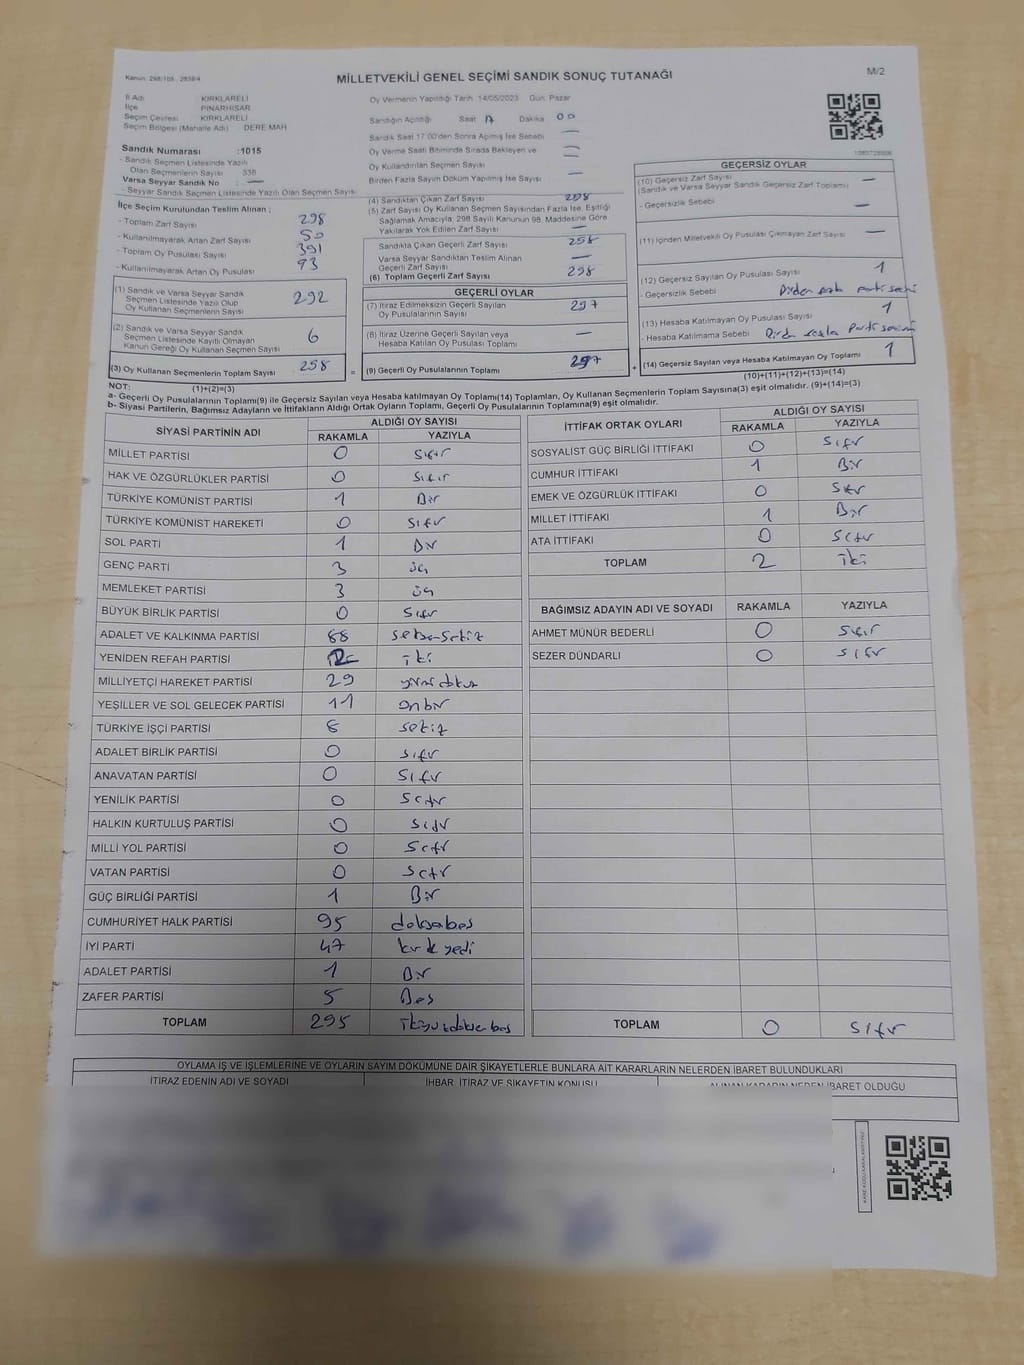 Kanun: 298/105 , 2839/4
MİLLETVEKİLİ GENEL SEÇİMİ SANDIK SONUÇ TUTANAĞI
M/2
İl Adı KIRKLARELİ
İlçe PINARHİSAR
Seçim Çevresi KIRKLARELİ
Seçim Bölgesi (Mahalle Adı) DERE MAH
Sandık Numarası :1015
- Sandık Seçmen Listesinde Yazılı
Olan Seçmenlerin Sayısı 336
Varsa Seyyar Sandık No : —
- Seyyar Sandık Seçmen Listesinde Yazılı Olan Seçmen Sayısı
Oy Vermenin Yapıldığı Tarih 14/05/2023 Gün: Pazar
Sandığın Açıldığı Saat 17 Dakika 00
Sandık Saat 17:00'den Sonra Açılmış İse Sebebi —
Oy Verme Saati Bitiminde Sırada Bekleyen ve —
Oy Kullandırılan Seçmen Sayısı —
Birden Fazla Sayım Döküm Yapılmış İse Sayısı —
İlçe Seçim Kurulundan Teslim Alınan ;
- Toplam Zarf Sayısı
- Kullanılmayarak Artan Zarf Sayısı 50
- Toplam Oy Pusulası Sayısı 391
- Kullanılmayarak Artan Oy Pusulası 93
(1) Sandık ve Varsa Seyyar Sandık
Seçmen Listesinde Yazılı Olup
Oy Kullanan Seçmenlerin Sayısı 292
(2) Sandık ve Varsa Seyyar Sandık
Seçmen Listesinde Kayıtlı Olmayan
Kanun Gereği Oy Kullanan Seçmen Sayısı 6
(3) Oy Kullanan Seçmenlerin Toplam Sayısı 298
(4) Sandıktan Çıkan Zarf Sayısı 298
(5) Zarf Sayısı Oy Kullanan Seçmen Sayısından Fazla İse, Eşitliği
Sağlamak Amacıyla; 298 Sayılı Kanunun 98. Maddesine Göre
Yakılarak Yok Edilen Zarf Sayısı —
Sandıkta Çıkan Geçerli Zarf Sayısı 298
Varsa Seyyar Sandıktan Teslim Alınan
Geçerli Zarf Sayısı —
(6) Toplam Geçerli Zarf Sayısı 298
GEÇERLİ OYLAR
(7) İtiraz Edilmeksizin Geçerli Sayılan
Oy Pusulalarının Sayısı 297
(8) İtiraz Üzerine Geçerli Sayılan veya
Hesaba Katılan Oy Pusulası Toplamı —
= (9) Geçerli Oy Pusulalarının Toplamı 297
GEÇERSİZ OYLAR
(10) Geçersiz Zarf Sayısı —
(Sandık ve Varsa Seyyar Sandık Geçersiz Zarf Toplamı)
- Geçersizlik Sebebi —
(11) İçinden Milletvekili Oy Pusulası Çıkmayan Zarf Sayısı —
(12) Geçersiz Sayılan Oy Pusulası Sayısı 1
- Geçersizlik Sebebi Birden fazla parti seçni
(13) Hesaba Katılmayan Oy Pusulası Sayısı 1
- Hesaba Katılmama Sebebi Birden fazla parti seçimi
+ (14) Geçersiz Sayılan veya Hesaba Katılmayan Oy Toplamı 1
NOT: (1)+(2)=(3)
(10)+(11)+(12)+(13)=(14)
a- Geçerli Oy Pusulalarının Toplamı(9) ile Geçersiz Sayılan veya Hesaba katılmayan Oy Toplamı(14) Toplamları, Oy Kullanan Seçmenlerin Toplam Sayısına(3) eşit olmalıdır. (9)+(14)=(3)
b- Siyasi Partilerin, Bağımsız Adayların ve İttifakların Aldığı Ortak Oyların Toplamı, Geçerli Oy Pusulalarının Toplamına(9) eşit olmalıdır.
SİYASİ PARTİNİN ADI ALDIĞI OY SAYISI
RAKAMLA YAZIYLA
MİLLET PARTİSİ 0 Sıfır
HAK VE ÖZGÜRLÜKLER PARTİSİ 0 Sıfır
TÜRKİYE KOMÜNİST PARTİSİ 1 Bir
TÜRKİYE KOMÜNİST HAREKETİ 0 Sıfır
SOL PARTİ 1 Bir
GENÇ PARTİ 3 üç
MEMLEKET PARTİSİ 3 üç
BÜYÜK BİRLİK PARTİSİ 0 Sıfır
ADALET VE KALKINMA PARTİSİ 88 seksensekiz
YENİDEN REFAH PARTİSİ 2 iki
MİLLİYETÇİ HAREKET PARTİSİ 29 yirmidokuz
YEŞİLLER VE SOL GELECEK PARTİSİ 11 onbir
TÜRKİYE İŞÇİ PARTİSİ 8 sekiz
ADALET BİRLİK PARTİSİ 0 sıfır
ANAVATAN PARTİSİ 0 Sıfır
YENİLİK PARTİSİ 0 Sıfır
HALKIN KURTULUŞ PARTİSİ 0 sıfır
MİLLİ YOL PARTİSİ 0 Sıfır
VATAN PARTİSİ 0 Sıfır
GÜÇ BİRLİĞİ PARTİSİ 1 Bir
CUMHURİYET HALK PARTİSİ 95 doksanbeş
İYİ PARTİ 47 kırk yedi
ADALET PARTİSİ 1 Bir
ZAFER PARTİSİ 5 Beş
TOPLAM 295 ikiyüzdoksanbeş
İTTİFAK ORTAK OYLARI ALDIĞI OY SAYISI
RAKAMLA YAZIYLA
SOSYALİST GÜÇ BİRLİĞİ İTTİFAKI 0 Sıfır
CUMHUR İTTİFAKI 1 Bir
EMEK VE ÖZGÜRLÜK İTTİFAKI 0 Sıfır
MİLLET İTTİFAKI 1 Bir
ATA İTTİFAKI 0 Sıfır
TOPLAM 2 iki
BAĞIMSIZ ADAYIN ADI VE SOYADI RAKAMLA YAZIYLA
AHMET MÜNÜR BEDERLİ 0 Sıfır
SEZER DÜNDARLI 0 sıfır
TOPLAM 0 sıfır
OYLAMA İŞ VE İŞLEMLERİNE VE OYLARIN SAYIM DÖKÜMÜNE DAİR ŞİKAYETLERLE BUNLARA AİT KARARLARIN NELERDEN İBARET BULUNDUKLARI
İTİRAZ EDENİN ADI VE SOYADI İHBAR, İTİRAZ VE ŞİKAYETİN KONUSU ALINAN KARARIN NEDEN İBARET OLDUĞU